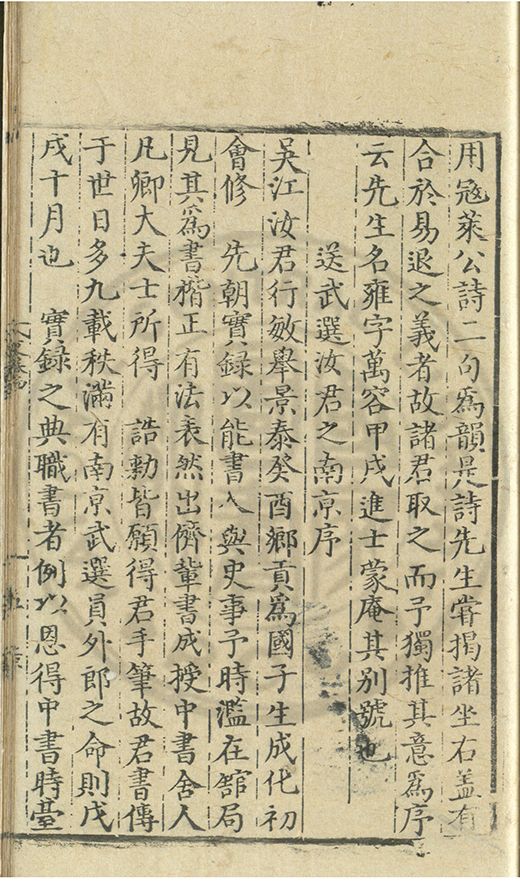 用寇萊公詩二句爲韻是詩先生嘗揭諸坐右盖有
合於易退之義者故諸君取之而予獨推其意爲序
云先生名雍字萬容甲戌進士蒙庵其别號也
送武選汝君之南京序
吳江汝君行敏舉景泰癸酉鄉貢爲國子生成化初
會修　先朝實録以能書入與史事予時濫在舘局
見其所爲書楷正有法表然出儕輩書成授中書舍人
凡卿大夫士所得　誥勑皆願得君手筆故君書傳
于世日多九載秩滿有南京武選員外郎之命則戊
戌十月也　實録之典職書者例以恩得中書時臺